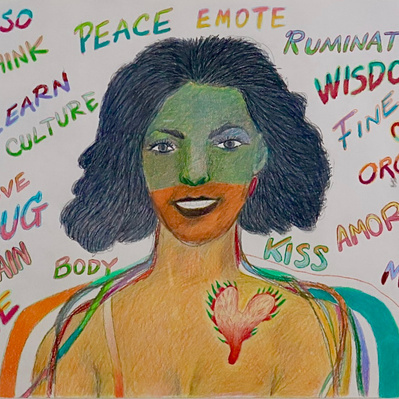 SO
PEACE
EMOTE
HINK
RUMINAT
LEARN
WISDO
CULTURE
FINE
VE
UG
AIN
BODY
KISS
AMOR
E